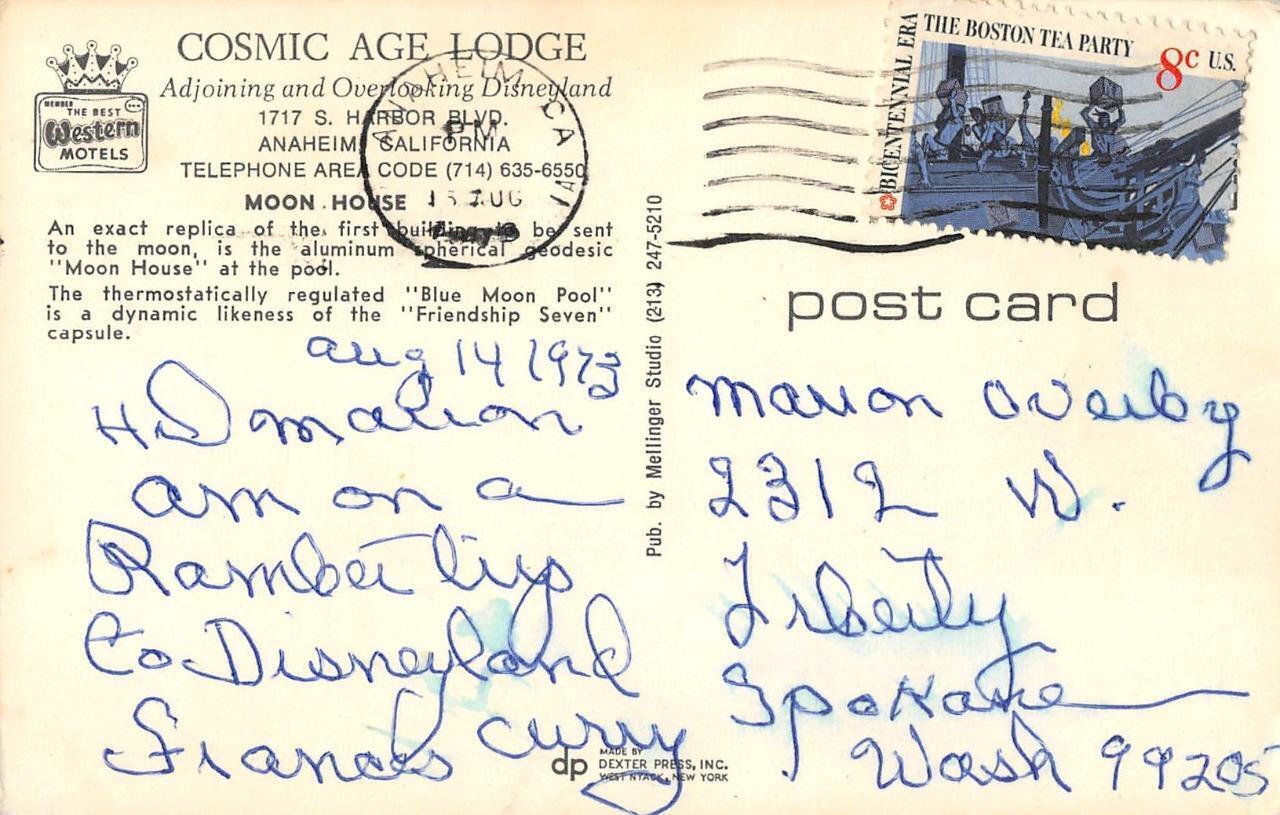 COSMIC AGE LODGE
Adjoining and Overlooking Disneyland
1717 S. HARBOR BLVD.
ANAHEIM, CALIFORNIA
TELEPHONE AREA CODE (714) 635-6550
MEMBER
THE BEST
Western
MOTELS
MOON HOUSE
An exact replica of the first building to be sent
to the moon, is the aluminum spherical geodesic
"Moon House" at the pool.
The thermostatically regulated "Blue Moon Pool"
is a dynamic likeness of the "Friendship Seven"
capsule.
ANAHEIM CA
PM
15 AUG
Aug 14 1973
Hi Marion
am on a
Rambler trip
to Disneyland
Frances Curry
Pub. by Mellinger Studio (213) 247-5210
MADE BY
dp DEXTER PRESS, INC.
WEST NYACK, NEW YORK
BICENTENNIAL ERA
THE BOSTON TEA PARTY
8c U.S.
post card
Marion Overby
2312 W.
Liberty
Spokane
Wash 99205